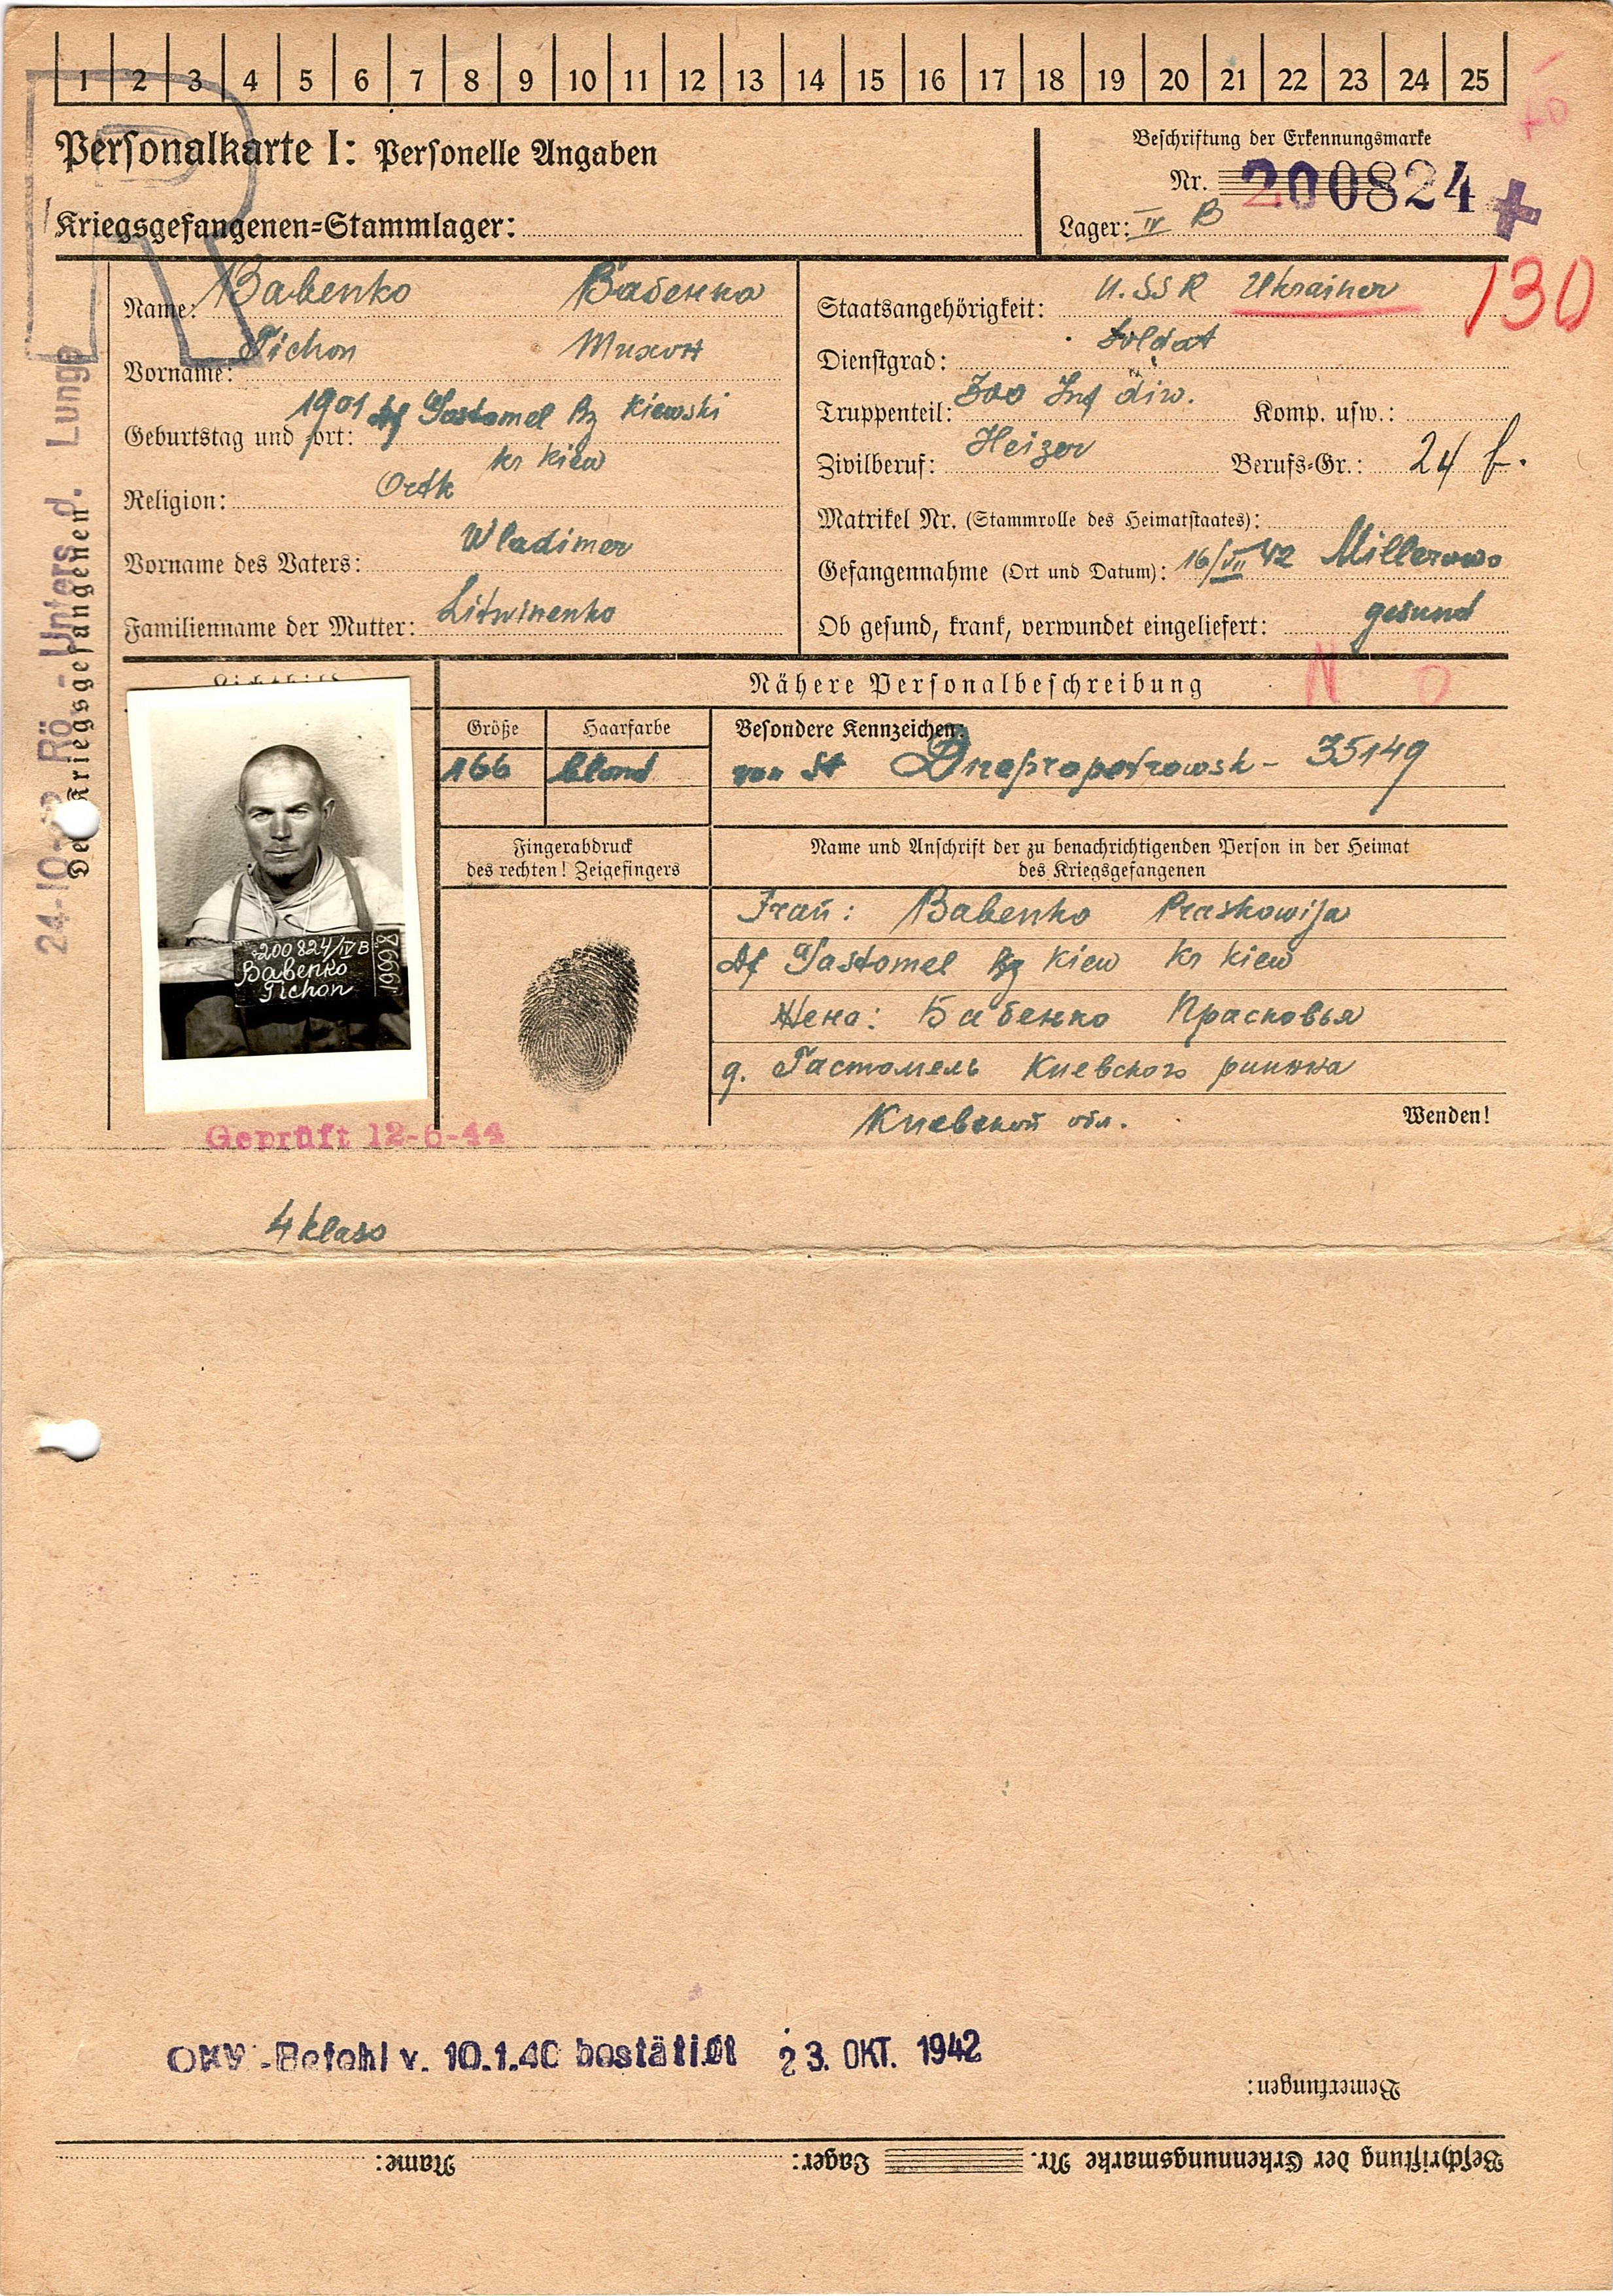 1 2 3 4 5 6 7 8 9 10 11 12 13 14 15 16 17 18 19 20 21 22 23 24 25
Personalkarte I: Personelle Angaben
Kriegsgefangenen=Stammlager:
Beschriftung der Erkennungsmarke
Nr. 200824
Lager: IV B
130
Name: Babenko Бабенко
Vorname: Tichon Тихон
Geburtstag und =ort: 1901 Df Gastomel Bz Kiewski
kr Kiew
Religion: Ortk
Vorname des Vaters: Wladimer
Familienname der Mutter: Litwinenko
Staatsangehörigkeit: U.SSR Ukrainer
Dienstgrad: Soldat
Truppenteil: 300 Inf diw. Komp. usw.:
Zivilberuf: Heizer Berufs=Gr.: 24 f.
Matrikel Nr. (Stammrolle des Heimatstaates):
Gefangennahme (Ort und Datum): 16/VII 42 Millerowo
Ob gesund, krank, verwundet eingeliefert: gesund
N O
Des Kriegsgefangenen
Rö.-Unters. d. Lunge
Lichtbild
Nähere Personalbeschreibung
Größe Haarfarbe
166 blond
Besondere Kennzeichen:
von St Dnepropetrowsk - 35149
Fingerabdruck
des rechten! Zeigefingers
Name und Anschrift der zu benachrichtigenden Person in der Heimat
des Kriegsgefangenen
Frau: Babenko Praskowija
Df Gastomel Bz Kiew kr Kiew
Жена: Бабенко Прасковья
д. Гастомель Киевского района
Киевской обл.
Wenden!
200824/IV B
Babenko
Tichon
Geprüft 12-6-44
4 klass
OKW-Befehl v. 10.1.40 bestätigt 23. OKT. 1942
Bemerkungen:
Beschriftung der Erkennungsmarke Nr. Lager: Name: